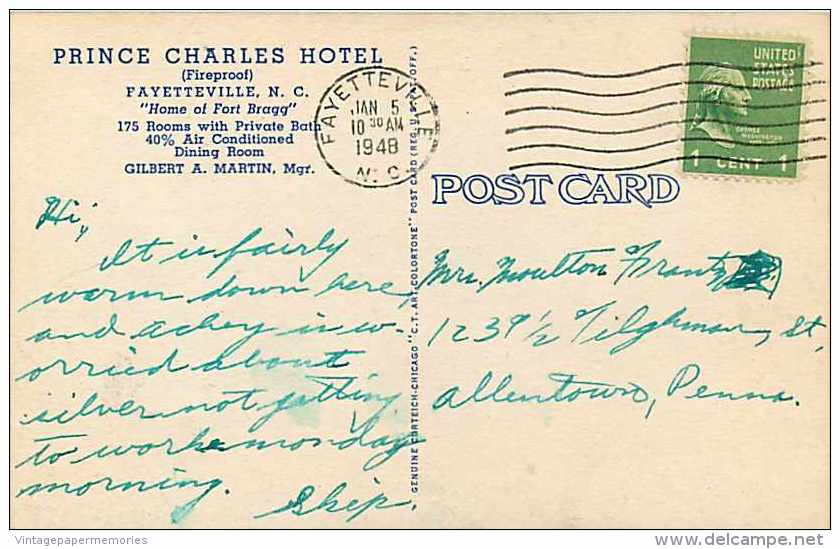 PRINCE CHARLES HOTEL
(Fireproof)
FAYETTEVILLE, N. C.
"Home of Fort Bragg"
175 Rooms with Private Bath
40% Air Conditioned
Dining Room
GILBERT A. MARTIN, Mgr.
FAYETTEVILLE
JAN 5
10 30 AM
1948
N. C.
UNITED
STATES
POSTAGE
GEORGE
WASHINGTON
1 CENT 1
POST CARD
GENUINE CURTEICH-CHICAGO "C.T. ART-COLORTONE" POST CARD (REG. U.S. PAT. OFF.)
Hi,
It is fairly
warm down here,
and Achey is w-
orried about
silver not getting
to work monday
morning.
Skip.
Mrs. Moulton Frantz
1239 1/2 Tilghman St,
Allentown, Penna.
Vintagepapermemories
delcampe.net